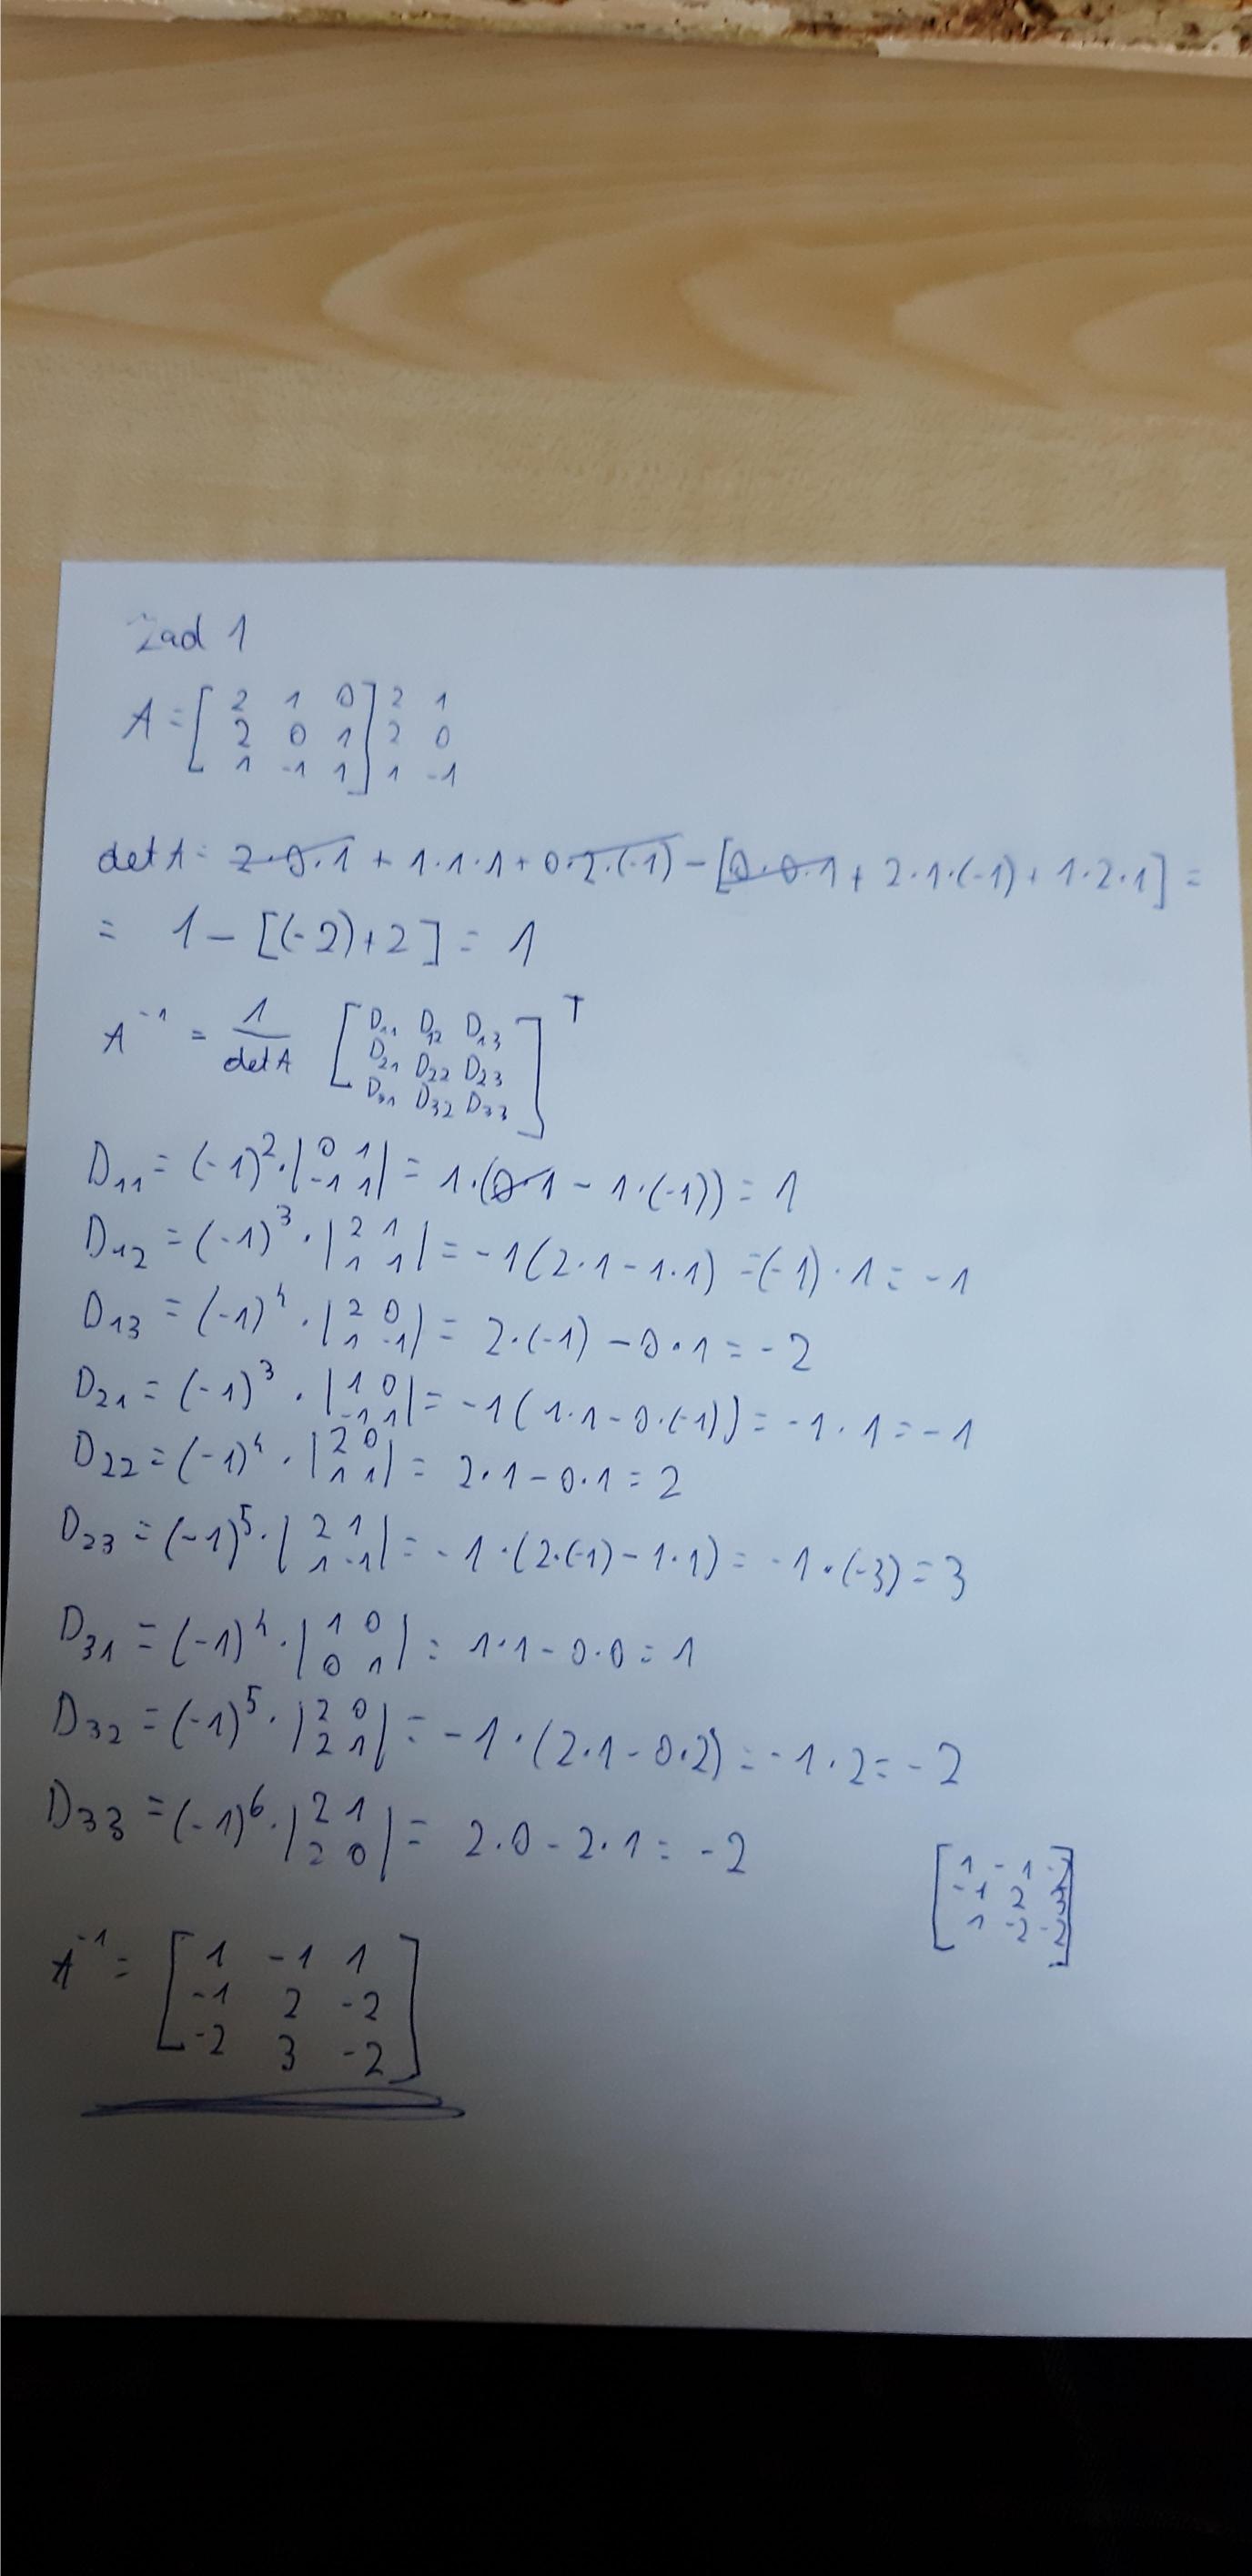 Zad 1
A = [ 2 1 0 ] 2 1
2 0 1 2 0
1 -1 1 1 -1
det A = 2·0·1 + 1·1·1 + 0·2·(-1) - [0·0·1 + 2·1·(-1) + 1·2·1] =
= 1 - [(-2)+2] = 1
A⁻¹ = 1/det A [ D₁₁ D₁₂ D₁₃ ]ᵀ
D₂₁ D₂₂ D₂₃
D₃₁ D₃₂ D₃₃
D₁₁ = (-1)² · |0 1 / -1 1| = 1·(0·1 - 1·(-1)) = 1
D₁₂ = (-1)³ · |2 1 / 1 1| = -1(2·1 - 1·1) = (-1)·1 = -1
D₁₃ = (-1)⁴ · |2 0 / 1 -1| = 2·(-1) - 0·1 = -2
D₂₁ = (-1)³ · |1 0 / -1 1| = -1(1·1 - 0·(-1)) = -1·1 = -1
D₂₂ = (-1)⁴ · |2 0 / 1 1| = 2·1 - 0·1 = 2
D₂₃ = (-1)⁵ · |2 1 / 1 -1| = -1·(2·(-1) - 1·1) = -1·(-3) = 3
D₃₁ = (-1)⁴ · |1 0 / 0 1| = 1·1 - 0·0 = 1
D₃₂ = (-1)⁵ · |2 0 / 2 1| = -1·(2·1 - 0·2) = -1·2 = -2
D₃₃ = (-1)⁶ · |2 1 / 2 0| = 2·0 - 2·1 = -2
[ 1 -1 -2 ]
-1 2 3
1 -2 -2
A⁻¹ = [ 1 -1 1 ]
-1 2 -2
-2 3 -2